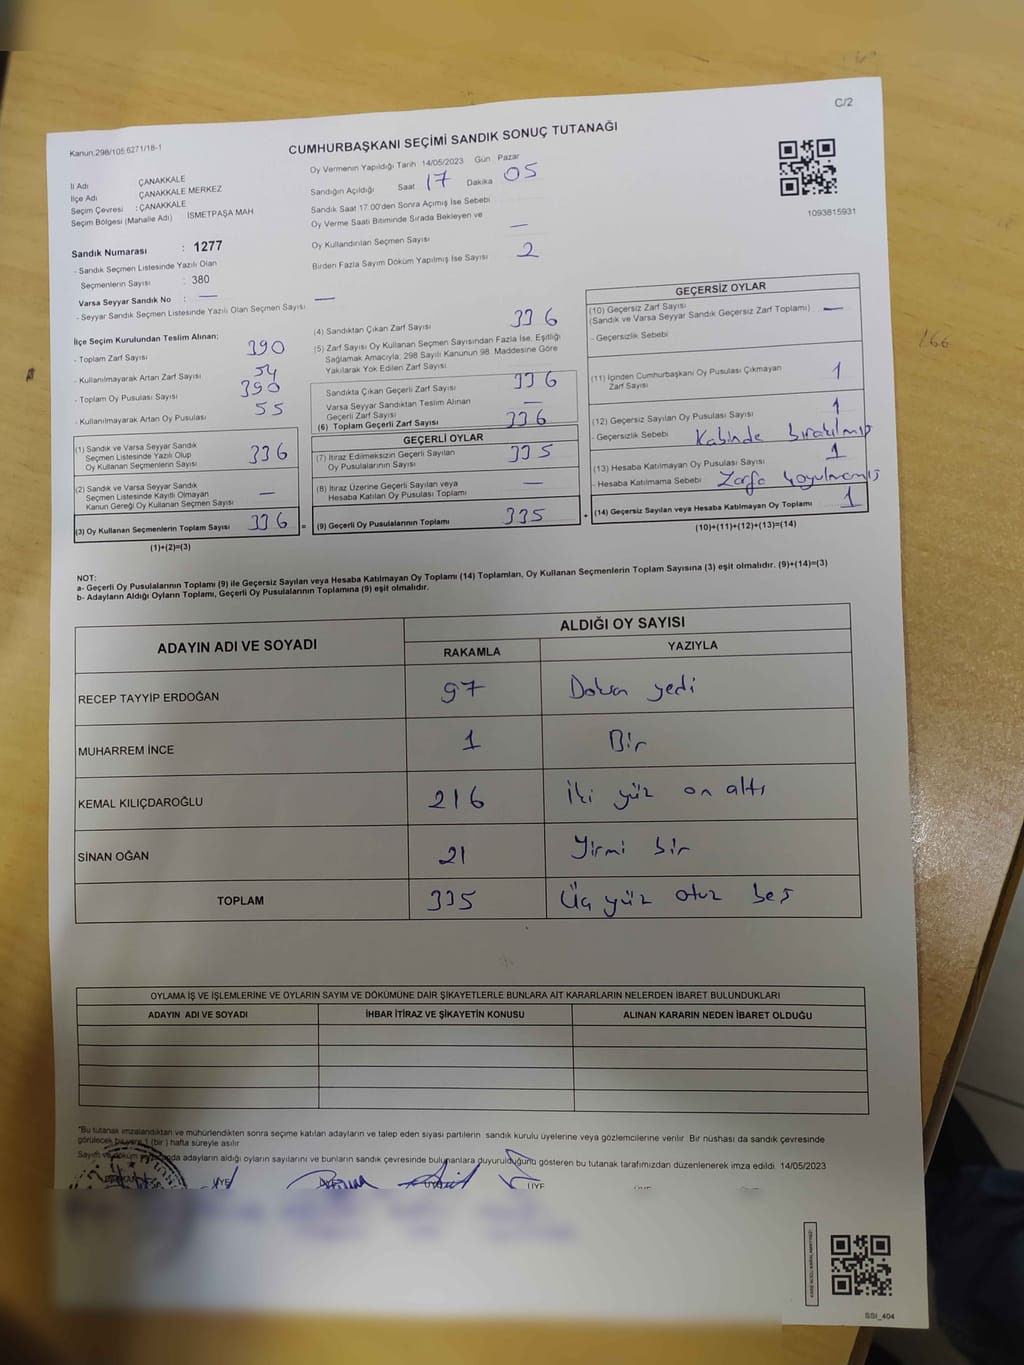 C/2
Kanun.298/105.6271/18-1
CUMHURBAŞKANI SEÇİMİ SANDIK SONUÇ TUTANAĞI
İl Adı ÇANAKKALE
İlçe Adı : ÇANAKKALE MERKEZ
Seçim Çevresi : ÇANAKKALE
Seçim Bölgesi (Mahalle Adı) İSMETPAŞA MAH
Oy Vermenin Yapıldığı Tarih 14/05/2023 Gün Pazar
Sandığın Açıldığı Saat 17 Dakika 05
Sandık Saat 17:00'den Sonra Açımış İse Sebebi
Oy Verme Saati Bitiminde Sırada Bekleyen ve
Oy Kullandırılan Seçmen Sayısı —
Birden Fazla Sayım Döküm Yapılmış İse Sayısı 2
1093815931
Sandık Numarası : 1277
- Sandık Seçmen Listesinde Yazılı Olan
Seçmenlerin Sayısı : 380
Varsa Seyyar Sandık No : —
- Seyyar Sandık Seçmen Listesinde Yazılı Olan Seçmen Sayısı —
İlçe Seçim Kurulundan Teslim Alınan;
- Toplam Zarf Sayısı 390
- Kullanılmayarak Artan Zarf Sayısı 54
- Toplam Oy Pusulası Sayısı 390
- Kullanılmayarak Artan Oy Pusulası 55
(1) Sandık ve Varsa Seyyar Sandık
Seçmen Listesinde Yazılı Olup
Oy Kullanan Seçmenlerin Sayısı 336
(2) Sandık ve Varsa Seyyar Sandık
Seçmen Listesinde Kayıtlı Olmayan
Kanun Gereği Oy Kullanan Seçmen Sayısı —
(3) Oy Kullanan Seçmenlerin Toplam Sayısı 336 =
(1)+(2)=(3)
(4) Sandıktan Çıkan Zarf Sayısı 336
(5) Zarf Sayısı Oy Kullanan Seçmen Sayısından Fazla İse, Eşitliği
Sağlamak Amacıyla, 298 Sayılı Kanunun 98. Maddesine Göre
Yakılarak Yok Edilen Zarf Sayısı
Sandıkta Çıkan Geçerli Zarf Sayısı 336
Varsa Seyyar Sandıktan Teslim Alınan
Geçerli Zarf Sayısı —
(6) Toplam Geçerli Zarf Sayısı 336
GEÇERLİ OYLAR
(7) İtiraz Edilmeksizin Geçerli Sayılan
Oy Pusulalarının Sayısı 335
(8) İtiraz Üzerine Geçerli Sayılan veya
Hesaba Katılan Oy Pusulası Toplamı —
(9) Geçerli Oy Pusulalarının Toplamı 335 +
GEÇERSİZ OYLAR
(10) Geçersiz Zarf Sayısı
(Sandık ve Varsa Seyyar Sandık Geçersiz Zarf Toplamı) —
- Geçersizlik Sebebi
(11) İçinden Cumhurbaşkanı Oy Pusulası Çıkmayan
Zarf Sayısı 1
(12) Geçersiz Sayılan Oy Pusulası Sayısı 1
- Geçersizlik Sebebi Kabinde bırakılmış
(13) Hesaba Katılmayan Oy Pusulası Sayısı 1
- Hesaba Katılmama Sebebi Zarfa koyulmamış
(14) Geçersiz Sayılan veya Hesaba Katılmayan Oy Toplamı 1
(10)+(11)+(12)+(13)=(14)
NOT:
a- Geçerli Oy Pusulalarının Toplamı (9) ile Geçersiz Sayılan veya Hesaba Katılmayan Oy Toplamı (14) Toplamları, Oy Kullanan Seçmenlerin Toplam Sayısına (3) eşit olmalıdır. (9)+(14)=(3)
b- Adayların Aldığı Oyların Toplamı, Geçerli Oy Pusulalarının Toplamına (9) eşit olmalıdır.
ADAYIN ADI VE SOYADI
ALDIĞI OY SAYISI
RAKAMLA YAZIYLA
RECEP TAYYİP ERDOĞAN 97 Doksan yedi
MUHARREM İNCE 1 Bir
KEMAL KILIÇDAROĞLU 216 İki yüz on altı
SİNAN OĞAN 21 Yirmi bir
TOPLAM 335 Üç yüz otuz beş
OYLAMA İŞ VE İŞLEMLERİNE VE OYLARIN SAYIM VE DÖKÜMÜNE DAİR ŞİKAYETLERLE BUNLARA AİT KARARLARIN NELERDEN İBARET BULUNDUKLARI
ADAYIN ADI VE SOYADI İHBAR İTİRAZ VE ŞİKAYETİN KONUSU ALINAN KARARIN NEDEN İBARET OLDUĞU
*Bu tutanak imzalandıktan ve mühürlendikten sonra seçime katılan adayların ve talep eden siyasi partilerin sandık kurulu üyelerine veya gözlemcilerine verilir Bir nüshası da sandık çevresinde
görülecek bir yere 1 (bir ) hafta süreyle asılır
Sayım ve döküm adayların aldığı oyların sayılarını ve bunların sandık çevresinde bulunanlara duyurulduğunu gösteren bu tutanak tarafımızdan düzenlenerek imza edildi. 14/05/2023
ÜYE ÜYE
SSI_404